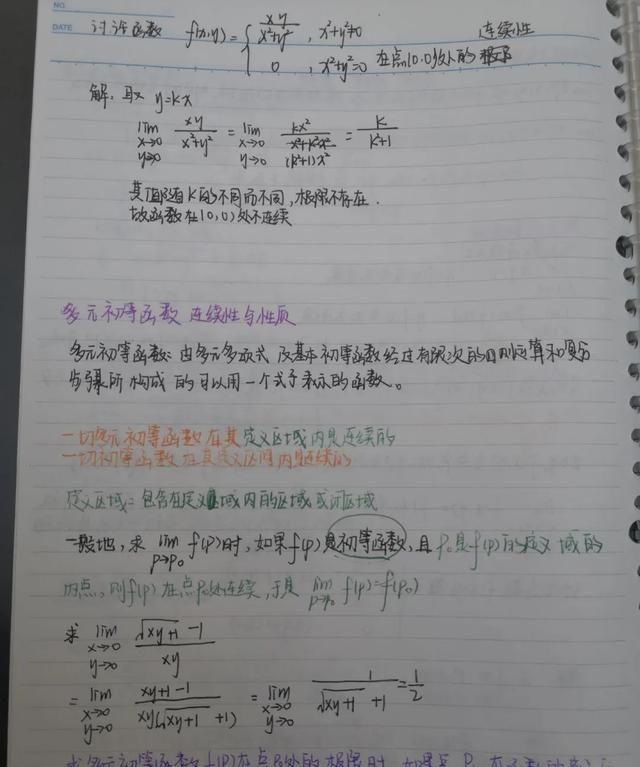 NO.
DATE 讨论函数 f(x,y)={ xy/(x²+y²), x²+y²≠0 连续性
0, x²+y²=0 在点(0,0)处的
解: 取 y=kx
lim(x→0, y→0) xy/(x²+y²) = lim(x→0, y→0) kx²/((k²+1)x²) = k/(k²+1)
其值随着k的不同而不同,极限不存在.
故函数在(0,0)处不连续
多元初等函数 连续性与性质
多元初等函数: 由多元多项式 及基本初等函数经过有限次的四则运算和复合
步骤所构成 的可以用一个式子表示的函数。
一切多元初等函数在其定义区域内是连续的
一切初等函数在其定义区间内是连续的
定义区域: 包含在定义域内的区域或闭区域
一般地,求 lim(P→P₀) f(P)时,如果f(P)是初等函数,且 P₀是f(P)的定义域的
内点,则f(P)在点P₀处连续,于是 lim(P→P₀) f(P)=f(P₀)
求 lim(x→0, y→0) (√(xy+1) -1)/xy
= lim(x→0, y→0) (xy+1-1)/(xy(√(xy+1) +1)) = lim(x→0, y→0) 1/(√(xy+1) +1) = 1/2